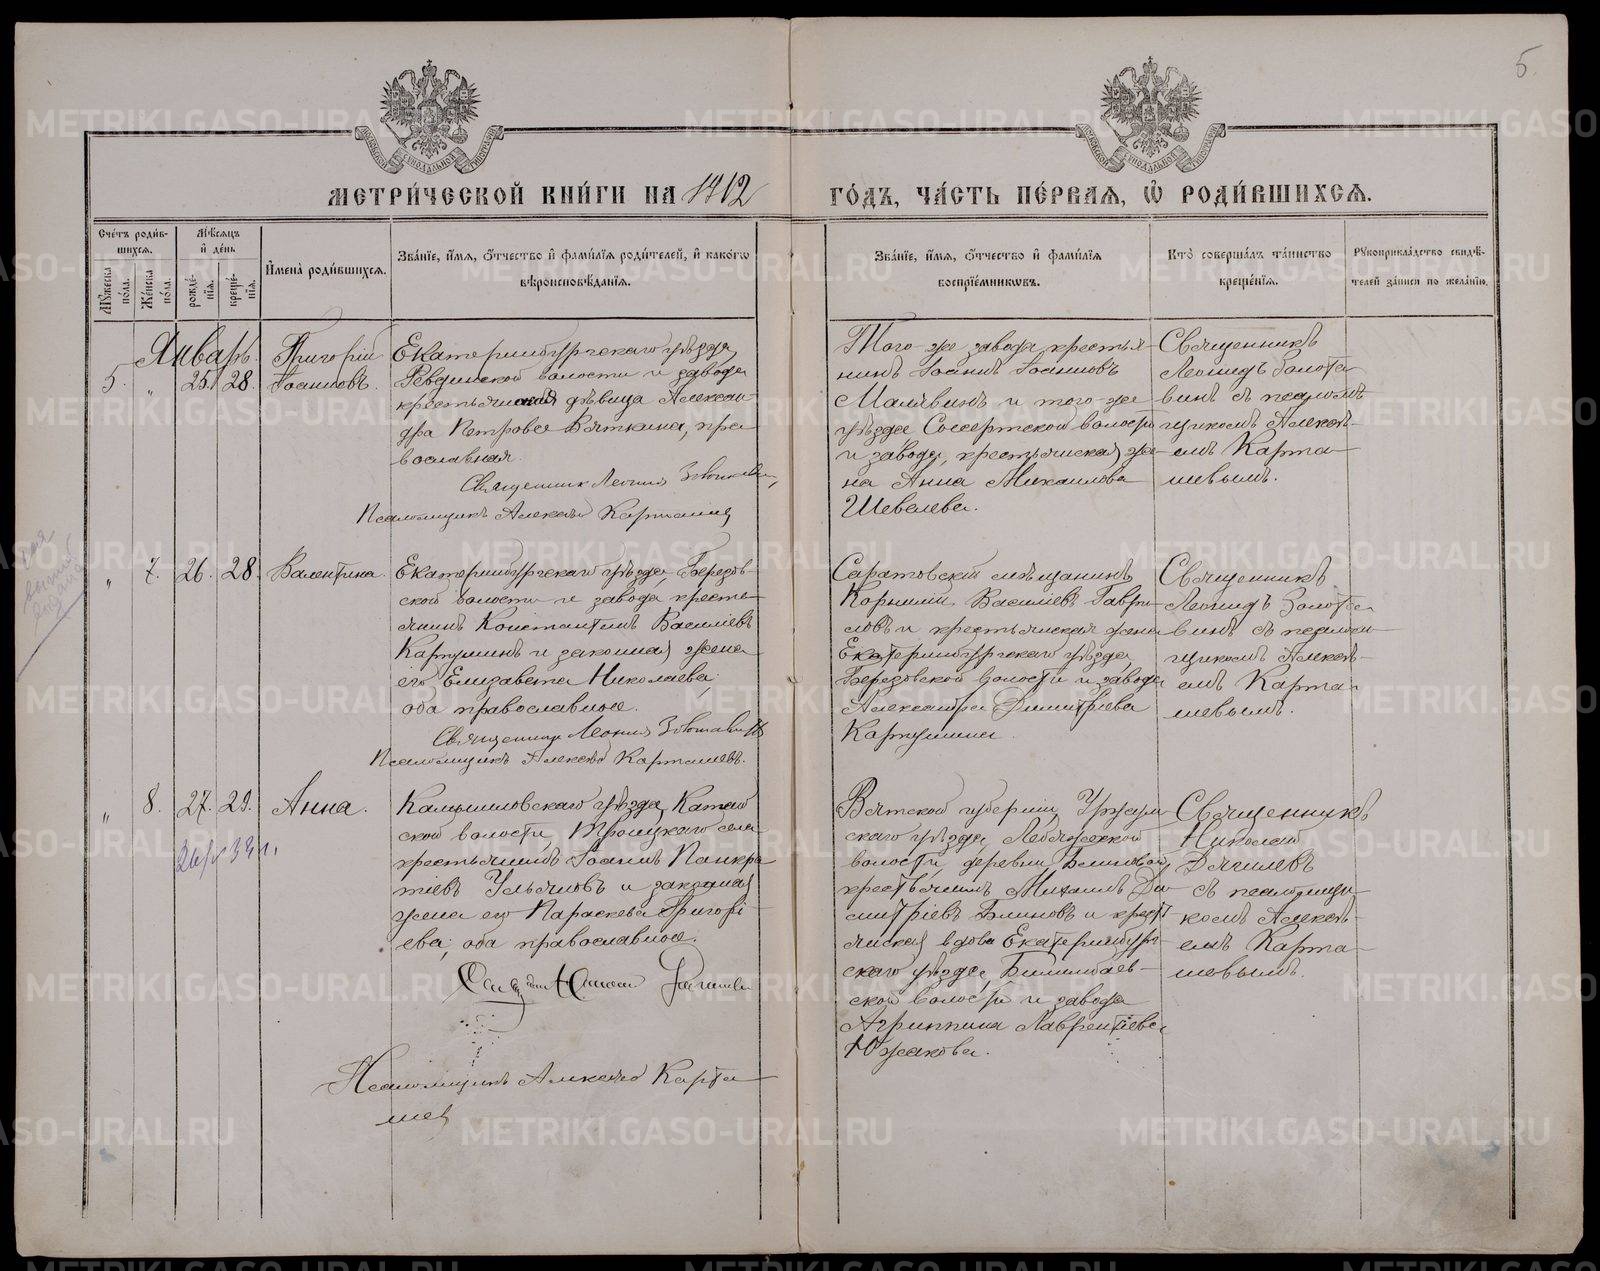 5.
МЕТРИ́ЧЕСКОЙ КНИ́ГИ НА 1912
ГО́ДЪ, ЧА́СТЬ ПЕ́РВАЯ, Ѡ҆ РОДИ́ВШИХСЯ.
Сче́тъ роди́в-
шихся.
Мꙋ́жеска по́ла.
Же́нска по́ла.
Мѣ́сяцъ
и҆ де́нь
рожде́-
нїѧ.
креще́-
нїѧ.
И҆мена̀ роди́вшихся.
Зва́нїе, и҆́мя, ѻ҆́тчество и҆ фами́лїя роди́телей, и҆ како́гѡ
вѣроисповѣ́данїя.
Зва́нїе, и҆́мя, ѻ҆́тчество и҆ фами́лїя
воспрїе́мниковъ.
Кто̀ соверша́лъ та́инство
креще́нїя.
Рꙋкоприкла́дство свидѣ́-
телей за́писи по жела́нїю.
Январь.
5. " 25. 28.
Григорій
Іоанновъ.
Екатеринбургскаго уѣзда
Ревдинской волости и завода
крестьянская дѣвица Алексан-
дра Петрова Вяткина, пра-
вославная.
Священник Леонид
Псаломщикъ Алексѣй Карташев
Того-же завода крестья-
нинъ Іоаннъ Іоанновъ
Малявинъ и того-же
уѣзда Сысертской волости
и завода, крестьянская же-
на Анна Михаилова
Шевелева.
Священникъ
Леонидъ Золота-
винъ съ псалом-
щикомъ Алексѣ-
емъ Карта-
шевымъ.
" 7. 26. 28.
Валентина.
Екатеринбургскаго уѣзда, Березов-
ской волости и завода, кресть-
янинъ Константинъ Василіевъ
Картушинъ и законная жена
его Елизавета Николаева,
оба православные.
Священник Леонид Золотавин
Псаломщикъ Алексѣй Карташевъ.
Саратовскій мѣщанинъ
Корнилій Василіевъ Гаври-
ловъ и крестьянская жена
Екатеринбургскаго уѣзда,
Березовской волости и завода
Александра Димитріева
Картушина.
Священникъ
Леонидъ Золота-
винъ съ псалом-
щикомъ Алексѣ-
емъ Карта-
шевымъ.
" 8. 27. 29.
Анна.
Камышловскаго уѣзда, Катай-
ской волости, Троицкаго села
крестьянинъ Іоаннъ Панкра-
тіевъ Ульяновъ и законная
жена его Параскева Григорі-
ева, оба православные.
Псаломщикъ Алексѣй Карта-
шев
Вятской губерніи, Уржум-
скаго уѣзда, Лебяжской
волости, деревни Блиновой
крестьянинъ Михаилъ Ди-
митріевъ Блиновъ и кресть-
янская вдова Екатеринбург-
скаго уѣзда, Билимбаев-
ской волости и завода
Агриппина Лаврентіева
Южакова.
Священникъ
Николай
Дягилевъ
съ псаломщи-
комъ Алексѣ-
емъ Карта-
шевымъ.
METRIKI.GASO-URAL.RU